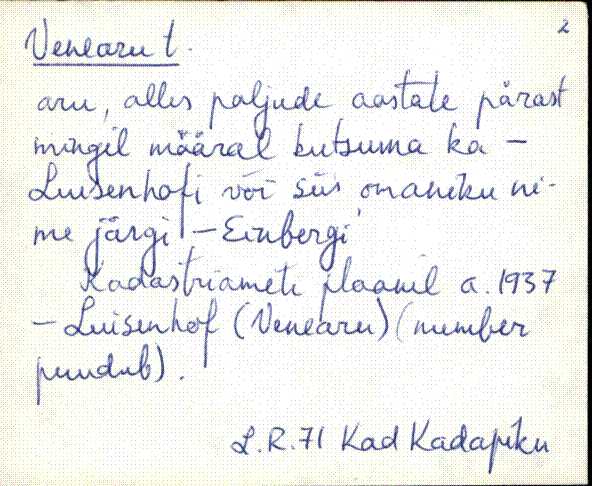 2
Venearu t.
aru, alles paljude aastate pärast
mingil määral kutsuma ka –
Luisenhofi või siis omaniku ni-
me järgi – Einbergi
Kadastriameti plaanil a. 1937
– Luisenhof (Venearu) (number
puudub).
L.R. 71 Kad Kadapiku